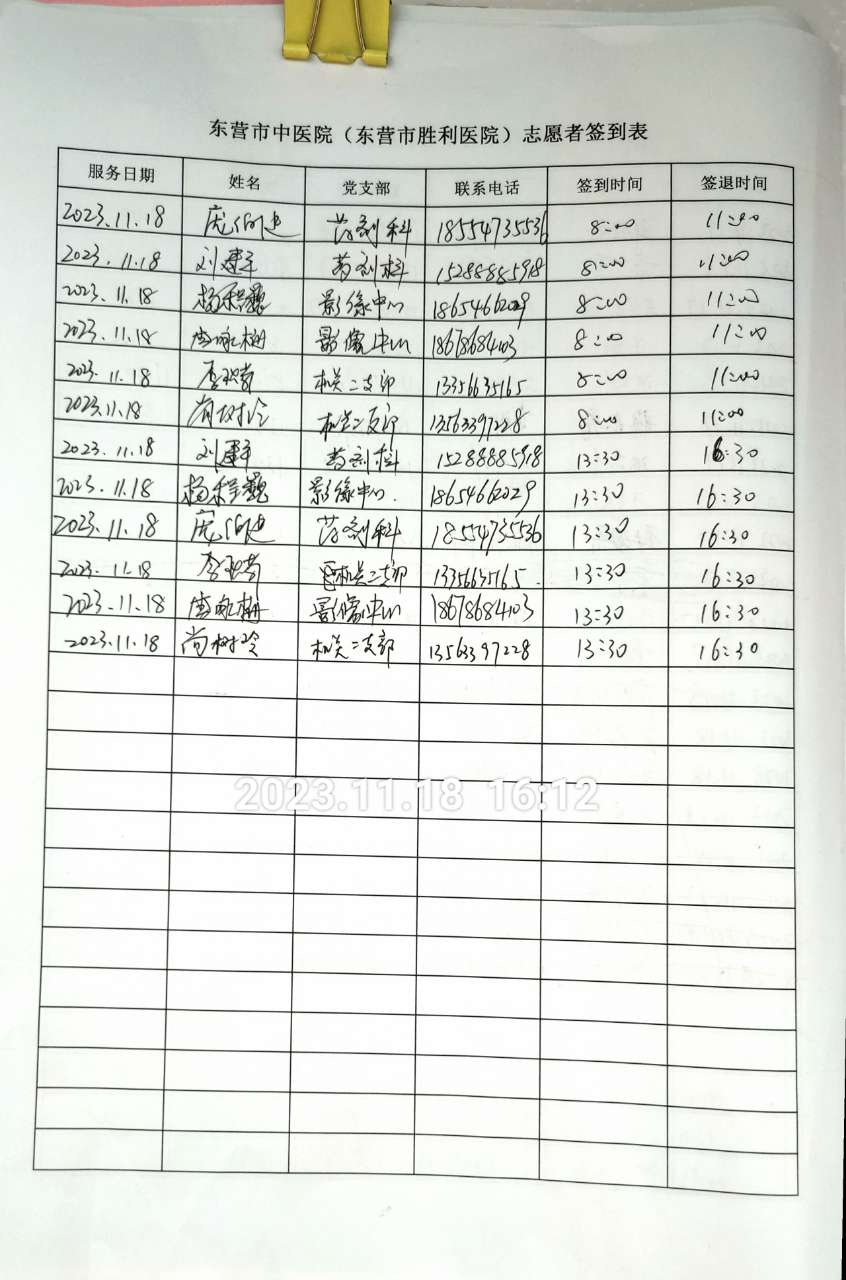 东营市中医院（东营市胜利医院）志愿者签到表
服务日期 姓名 党支部 联系电话 签到时间 签退时间
2023.11.18 药剂科 18554735536 8:00 11:00
2023.11.18 刘建军 药剂科 15288885918 8:00 11:00
2023.11.18 杨程巍 影像中心 18654662029 8:00 11:00
2023.11.18 影像中心 18678684103 8:00 11:00
2023.11.18 机关二支部 13356635165 8:00 11:00
2023.11.18 尚树玲 机关二支部 13563397228 8:00 11:00
2023.11.18 刘建军 药剂科 15288885918 13:30 16:30
2023.11.18 杨程巍 影像中心. 18654662029 13:30 16:30
2023.11.18 药剂科 18554735536 13:30 16:30
2023.11.18 机关二支部 13356635165. 13:30 16:30
2023.11.18 影像中心 18678684103 13:30 16:30
2023.11.18 尚树玲 机关二支部 13563397228 13:30 16:30
2023.11.18 16:12